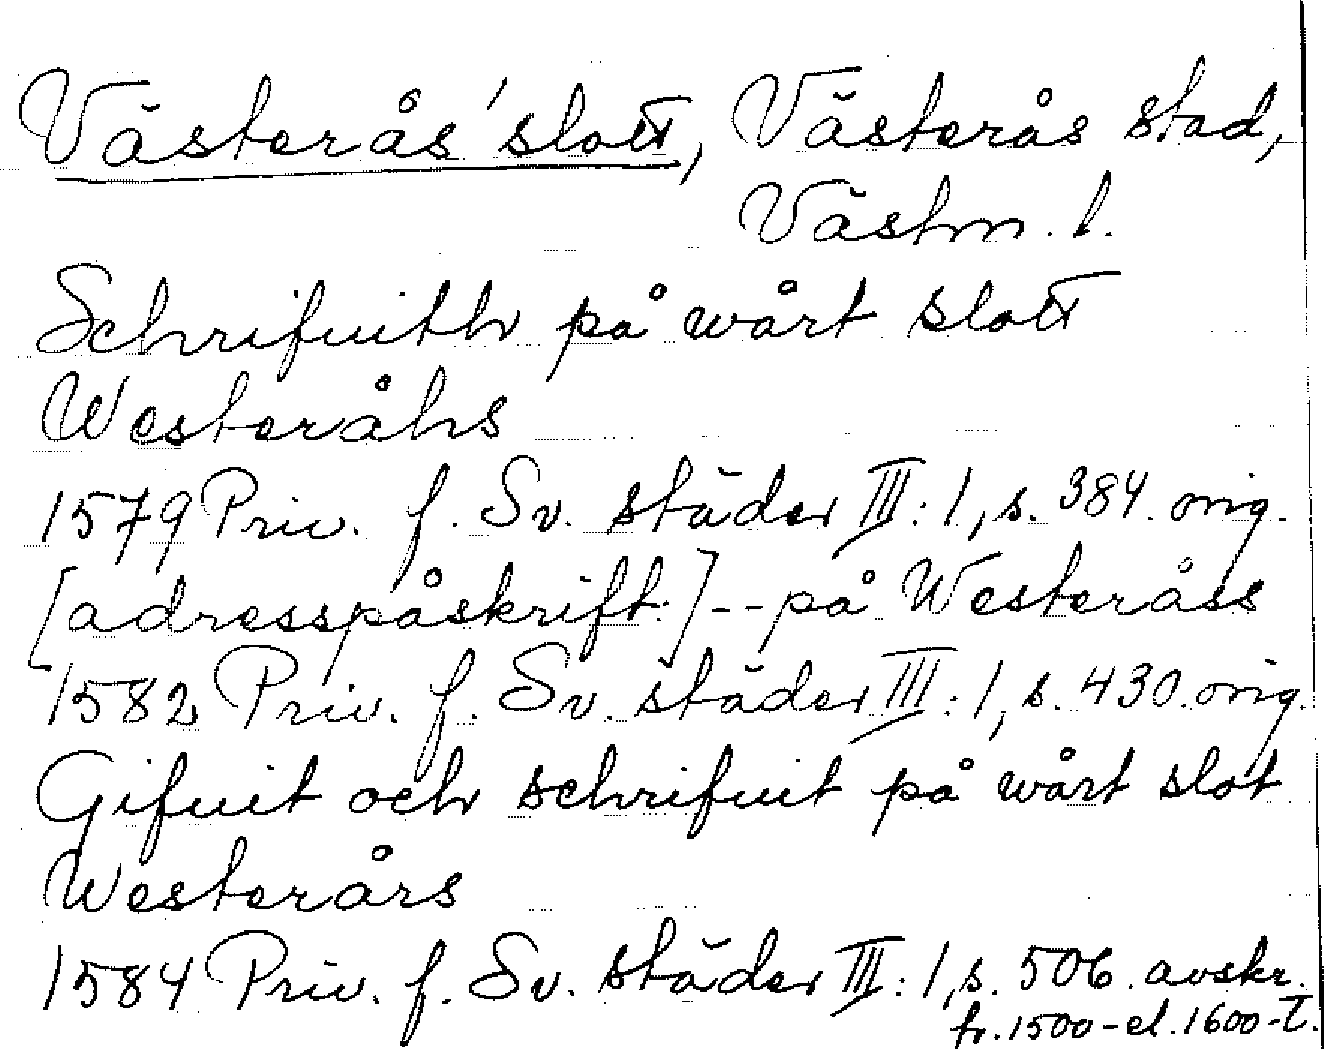 Västerås slott, Västerås stad,
Västm. l.
Schrifuith på wårt slott
Westeråhs
1579 Priv. f. Sv. städer III:1, s. 384. orig.
[adresspåskrift:] -- på Westeråss
1582 Priv. f. Sv. städer III:1, s. 430. orig.
Gifuit och schrifuit på wårt slot
Westerårs
1584 Priv. f. Sv. städer III:1, s. 506. avskr.
fr. 1500- el. 1600-t.